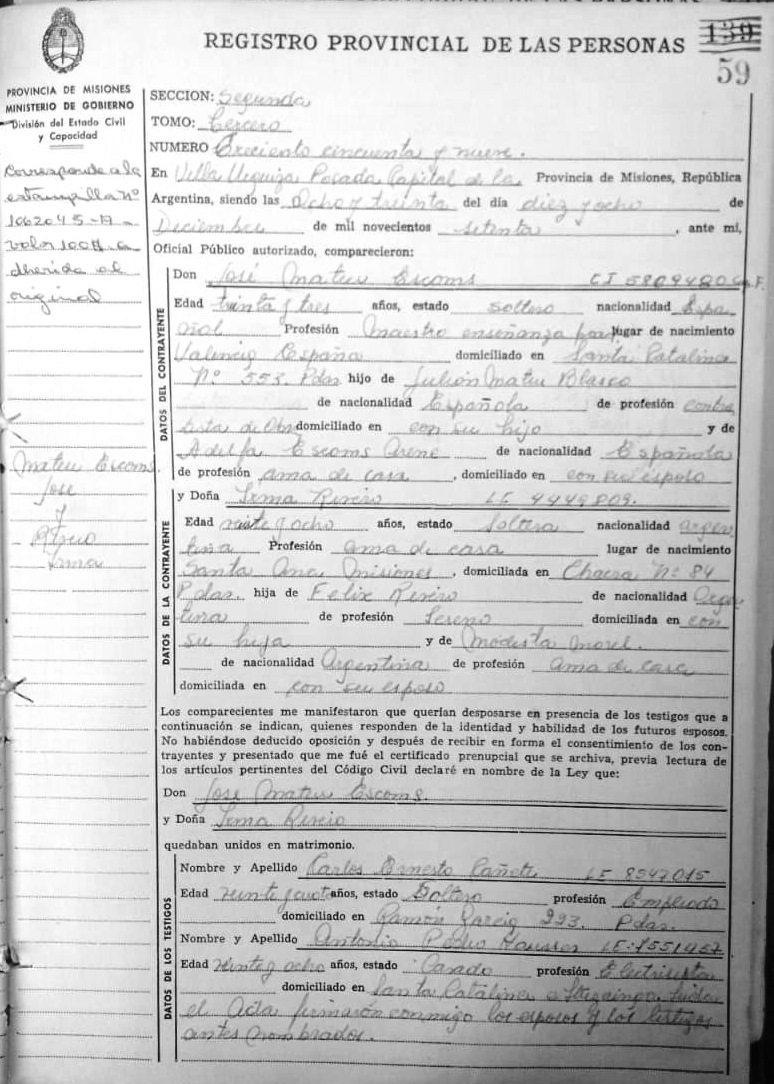 REGISTRO PROVINCIAL DE LAS PERSONAS 139
59
PROVINCIA DE MISIONES
MINISTERIO DE GOBIERNO
División del Estado Civil
y Capacidad
Corresponde a la
estampilla nº
1062045-19
valor 100
adherida al
original
Mateu Escoms
José
y
Irma
SECCION: Segunda
TOMO: Tercero
NUMERO Treciento cincuenta y nueve.
En Villa Urquiza Posadas Capital de la Provincia de Misiones, República
Argentina, siendo las Ocho y treinta del día diez y ocho de
Diciembre de mil novecientos setenta, ante mí,
Oficial Público autorizado, comparecieron:
DATOS DEL CONTRAYENTE
Don José Mateu Escoms CI 5809480
Edad treinta y tres años, estado soltero nacionalidad Espa
ñol Profesión Maestro enseñanza lugar de nacimiento
Valencia España domiciliado en Santa Catalina
Nº 553. Pdas hijo de Julián Mateu Blasco
de nacionalidad Española de profesión contra
tista de Obra domiciliado en con su hijo y de
Adelfa Escoms de nacionalidad Española
de profesión ama de casa, domiciliado en con su esposo
DATOS DE LA CONTRAYENTE
y Doña Irma Riveiro LE 4449809.
Edad veinte y ocho años, estado Soltera nacionalidad Argen
tina Profesión ama de casa lugar de nacimiento
Santa Ana Misiones, domiciliada en Chacra Nº 84
Pdas. hija de Felix Riveiro de nacionalidad Argen
tina de profesión Sereno domiciliada en con
su hija y de Modesta Morel.
de nacionalidad Argentina de profesión ama de casa
domiciliada en con su esposo
Los comparecientes me manifestaron que querían desposarse en presencia de los testigos que a
continuación se indican, quienes responden de la identidad y habilidad de los futuros esposos.
No habiéndose deducido oposición y después de recibir en forma el consentimiento de los con-
trayentes y presentado que me fué el certificado prenupcial que se archiva, previa lectura de
los artículos pertinentes del Código Civil declaré en nombre de la Ley que:
Don José Mateu Escoms.
y Doña Irma Riveiro
quedaban unidos en matrimonio.
DATOS DE LOS TESTIGOS
Nombre y Apellido Carlos Ernesto Cañete LE 8547015
Edad años, estado Soltero profesión Empleado
domiciliado en Ramón García 293. Pdas.
Nombre y Apellido Antonio Pedro LE.
Edad veinte y ocho años, estado Casado profesión Electricista
domiciliado en Santa Catalina e Ituzaingo. Leida
el Acta firmarón conmigo los esposos y los testigos
antes nombrados.